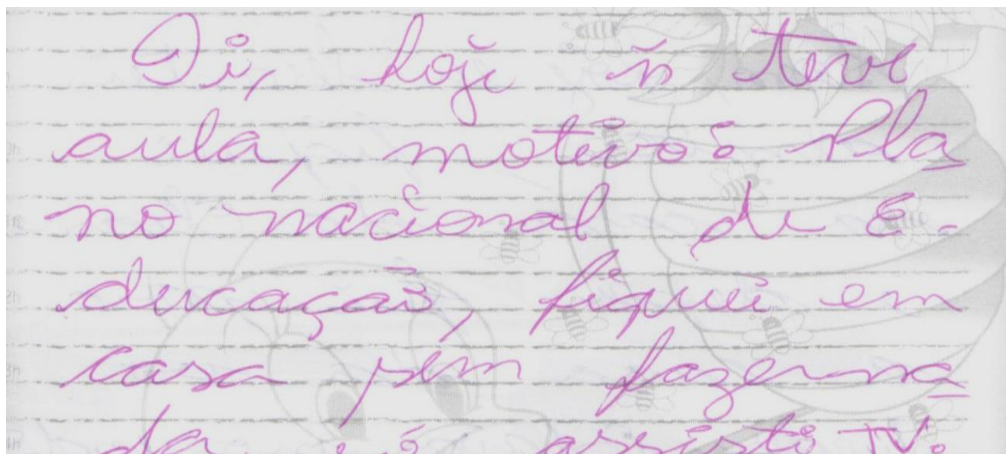 Oi, hoje ñ teve
aula, motivo: Pla
no nacional de e-
ducação, fiquei em
casa sem fazer na
da assisti TV.